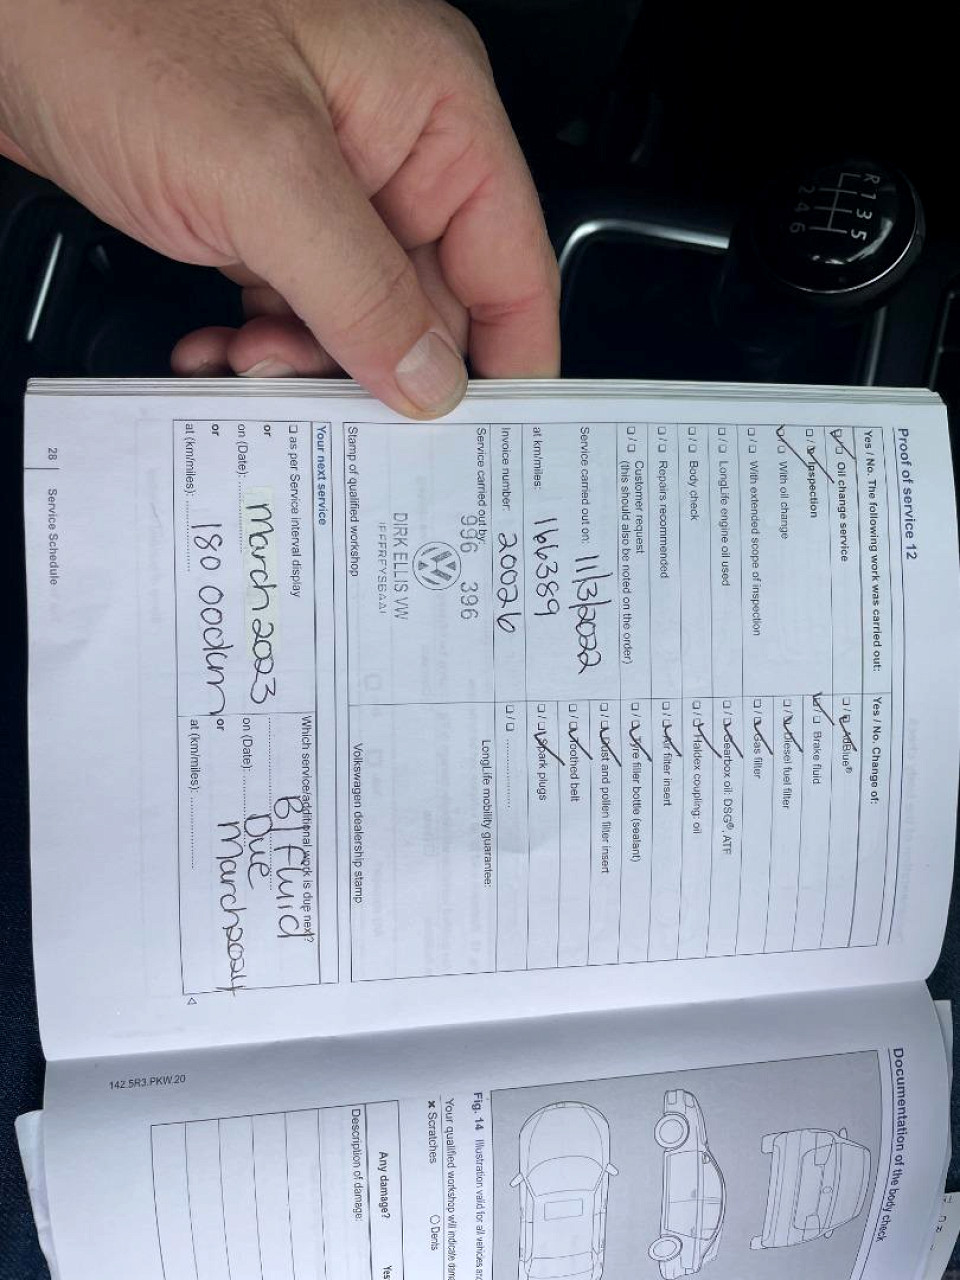 R 1 3 5
2 4 6
Proof of service 12
Yes / No. The following work was carried out:
Oil change service
Inspection
With oil change
With extended scope of inspection
LongLife engine oil used
Body check
Repairs recommended
Customer request
(this should also be noted on the order)
Service carried out on: 11/3/2022
at km/miles: 166389
Invoice number: 20026
Service carried out by:
996 396
DIRK ELLIS VW
Stamp of qualified workshop
Yes / No. Change of:
AdBlue®
Brake fluid
Diesel fuel filter
Gas filter
Gearbox oil: DSG®, ATF
Haldex coupling: oil
Air filter insert
Tyre filler bottle (sealant)
Dust and pollen filter insert
Toothed belt
Spark plugs
LongLife mobility guarantee:
Volkswagen dealership stamp
Your next service
as per Service interval display
or
on (Date): March 2023
or
at (km/miles): 180 000km
Which service/additional work is due next?
B/Fluid
Due
on (Date): March 2024
or
at (km/miles):
28 Service Schedule
Documentation of the body check
Fig. 14 Illustration valid for all vehicles
Your qualified workshop will indicate
x Scratches O Dents
Any damage? Yes
Description of damage:
142.5R3.PKW.20